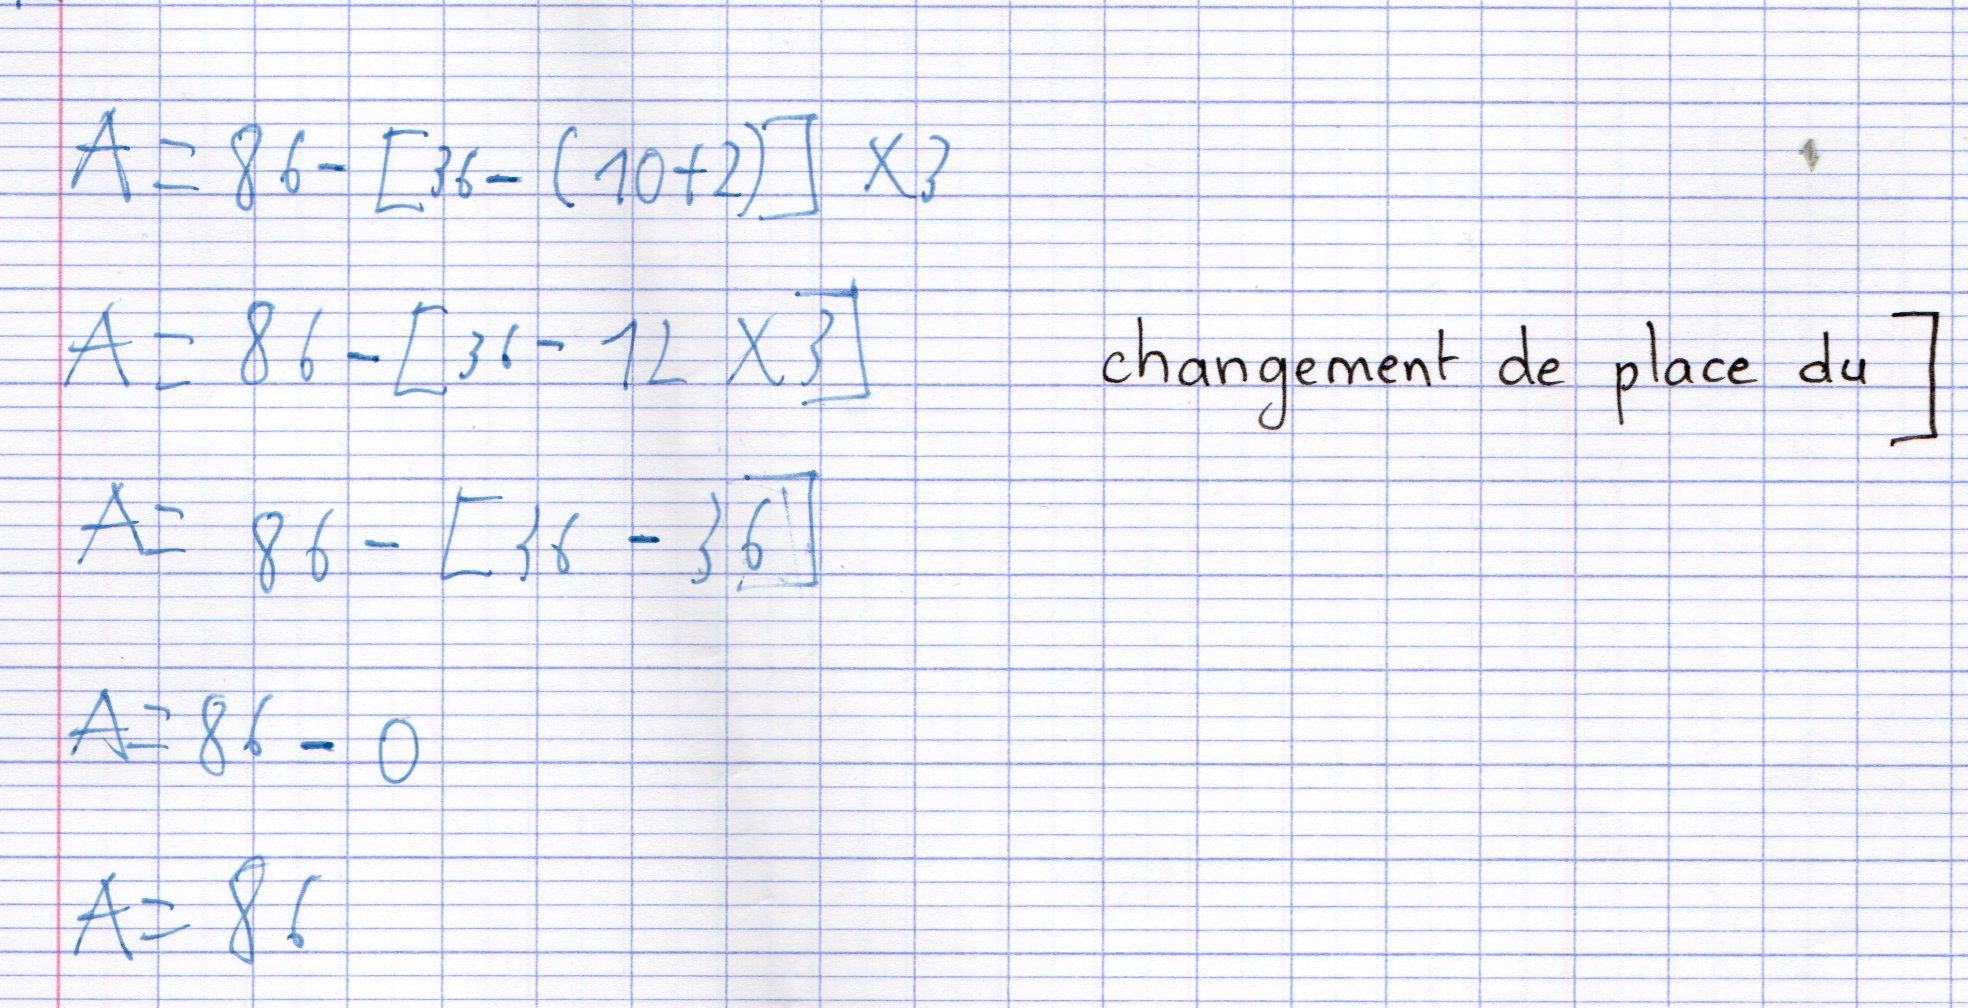 A = 86 - [36 - (10+2)] X3
A = 86 - [36 - 12 X 3] changement de place du ]
A = 86 - [36 - 36]
A = 86 - 0
A = 86